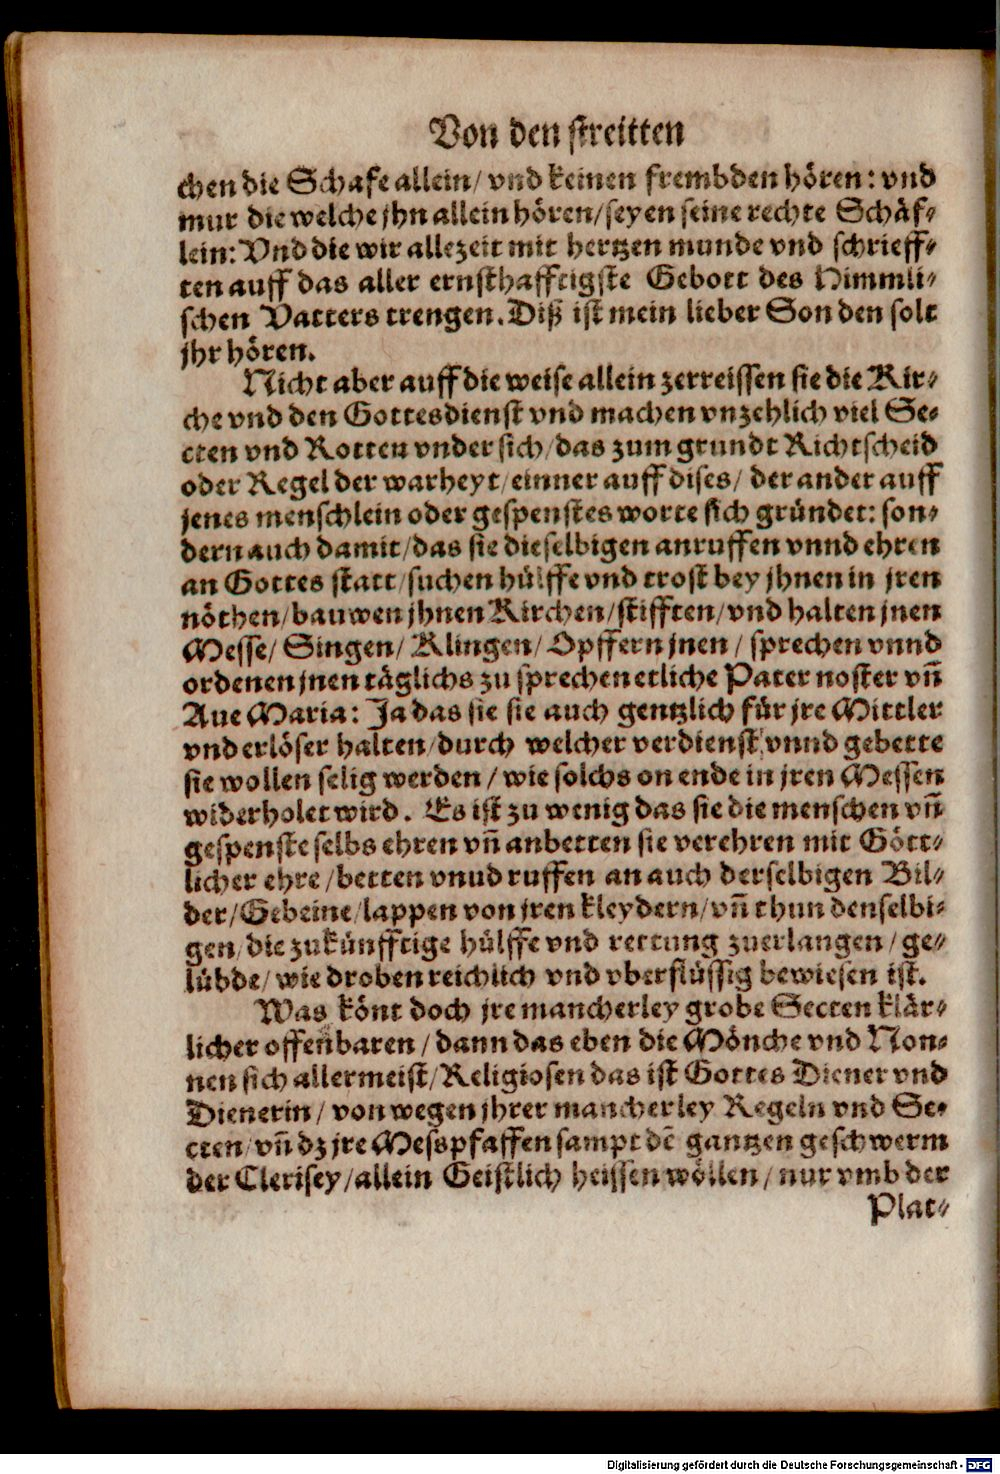 Von den streitten
chen die Schafe allein/ vnd keinen frembden hören: vnd
mur die welche jhn allein hören/seyen seine rechte Schäf-
lein: Vnd die wir allezeit mit hertzen munde vnd schrieff-
ten auff das aller ernsthafftigste Gebott des Himmli-
schen Vatters trengen. Diß ist mein lieber Son den solt
jhr hören.
Nicht aber auff die weise allein zerreissen sie die Kir-
che vnd den Gottesdienst vnd machen vnzehlich viel Se-
cten vnd Rotten vnder sich/das zum grundt Richtscheid
oder Regel der warheyt/einner auff dises/ der ander auff
jenes menschlein oder gespenstes worte sich gründet: son-
dern auch damit/das sie dieselbigen anruffen vnnd ehren
an Gottes statt/suchen hülffe vnd trost bey jhnen in jren
nöthen/bauwen jhnen Kirchen/stifften/vnd halten jnen
Messe/ Singen/ Klingen/ Opffern jnen/ sprechen vnnd
ordenen jnen täglichs zu sprechen etliche Pater noster vñ
Aue Maria: Ja das sie sie auch gentzlich für jre Mittler
vnd erlöser halten/durch welcher verdienst vnnd gebette
sie wollen selig werden/ wie solchs on ende in jren Messen
widerholet wird. Es ist zu wenig das sie die menschen vñ
gespenste selbs ehren vñ anbetten sie verehren mit Gött-
licher ehre/betten vnud ruffen an auch derselbigen Bil-
der/Gebeine/lappen von jren kleydern/vñ thun denselbi-
gen/die zukünfftige hülffe vnd rettung zuerlangen/ge-
lübde/ wie droben reichlich vnd vberflüssig bewiesen ist.
Was könt doch jre mancherley grobe Secten klär-
licher offenbaren/dann das eben die Mönche vnd Non-
nen sich allermeist/Religiosen das ist Gottes Diener vnd
Dienerin/ von wegen jhrer mancherley Regeln vnd Se-
cten/vñ dz jre Messpfaffen sampt dẽ gantzen geschwerm
der Clerisey/allein Geistlich heissen wöllen/ nur vmb der
Plat-
Digitalisierung gefördert durch die Deutsche Forschungsgemeinschaft - DFG